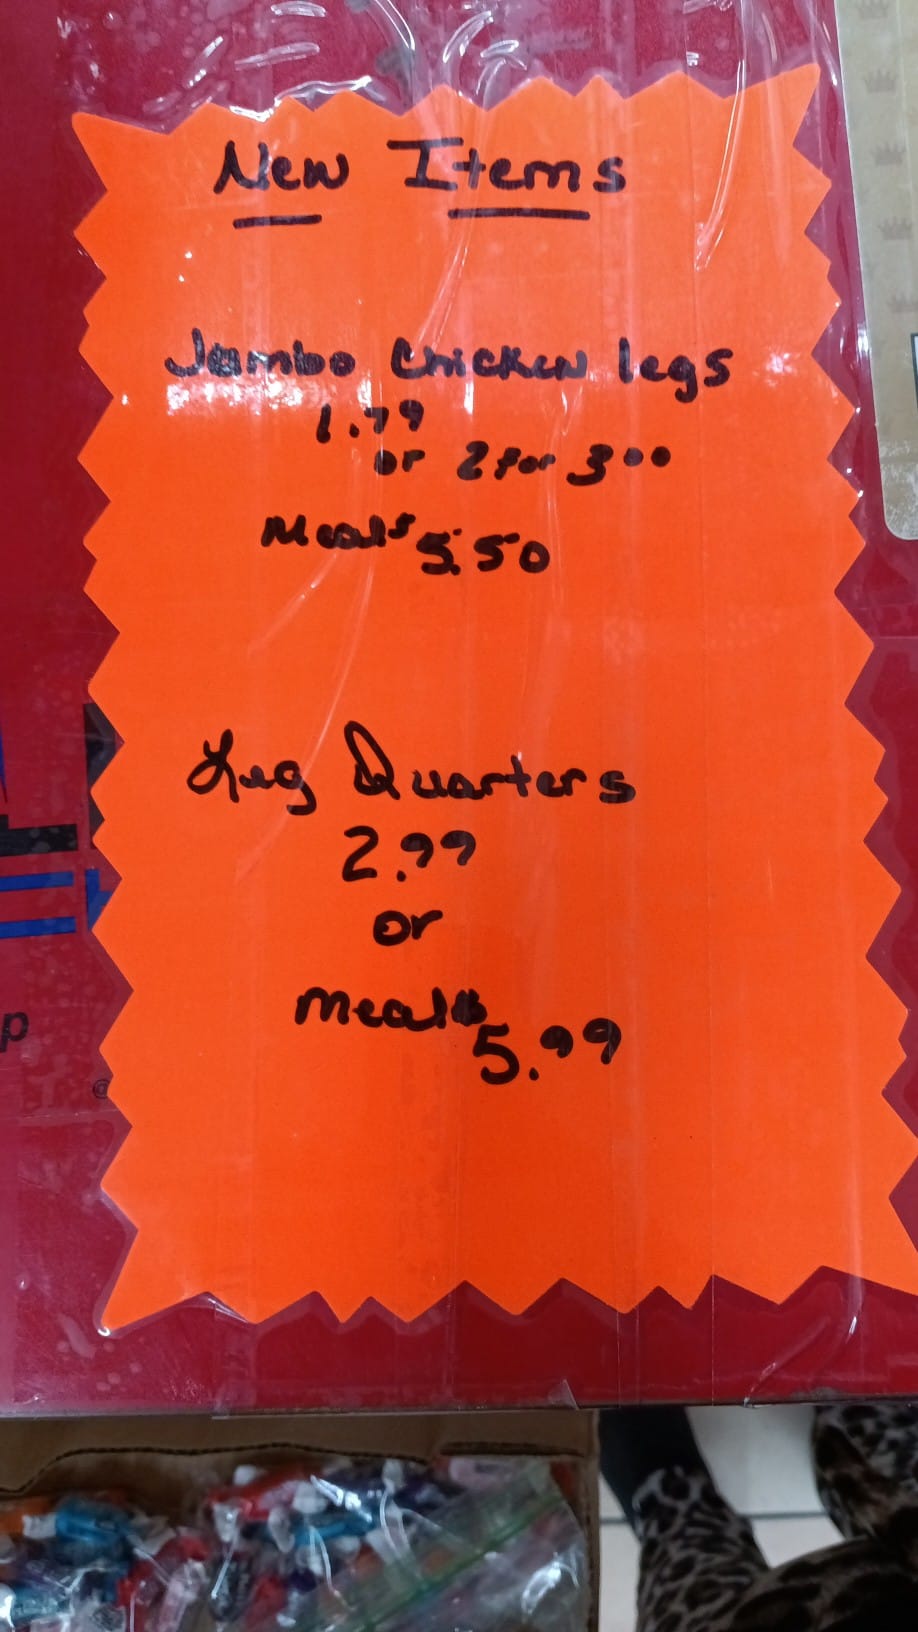 New Items
Jambo Chicken legs
1.79
or 2 for 3 00
Meals 5.50
Leg Quarters
2.99
or
meals
5.99
p
©